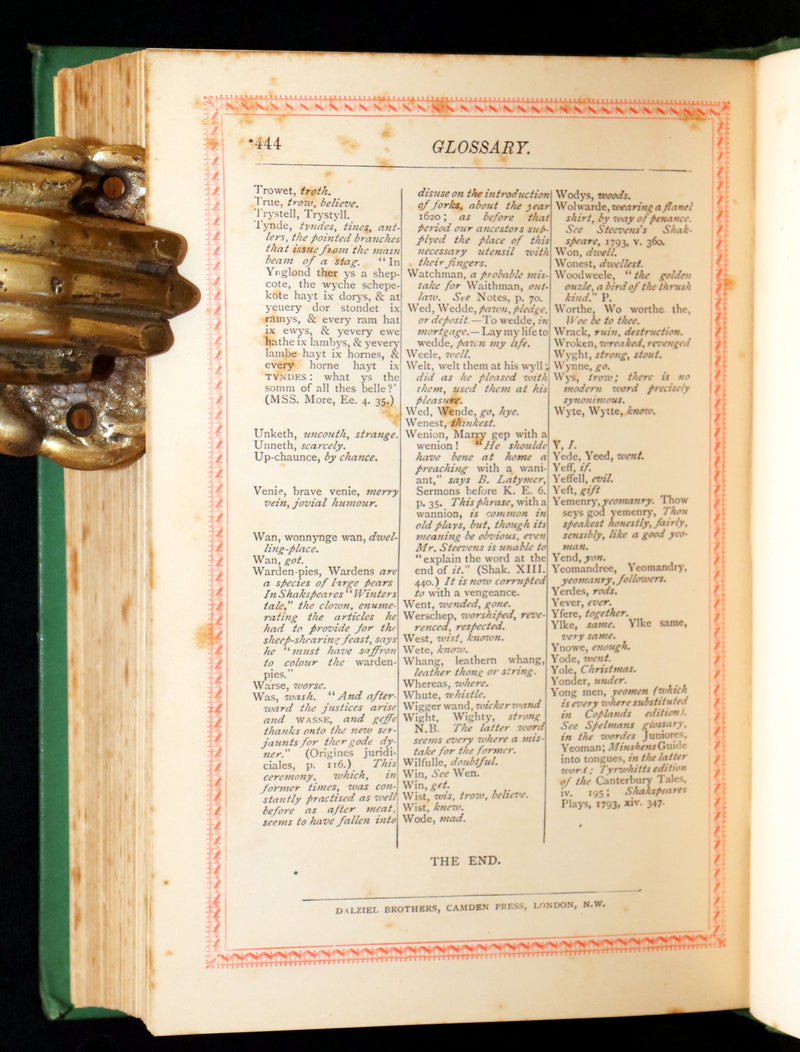 444
GLOSSARY.
Trowet, troth.
True, trow, believe.
Trystell, Trystyll.
Tynde, tyndes, tines, ant-
lers, the pointed branches
that issue from the main
beam of a stag. "In
Ynglond ther ys a shep-
cote, the wyche schepe-
kote hayt ix dorys, & at
yeuery dor stondet ix
ramys, & every ram hat
ix ewys, & yevery ewe
hathe ix lambys, & yevery
lambe hayt ix hornes, &
every horne hayt ix
TYNDES: what ys the
somm of all thes belle?"
(MSS. More, Ee. 4. 35.)
Unketh, uncouth, strange.
Unneth, scarcely.
Up-chaunce, by chance.
Venie, brave venie, merry
vein, jovial humour.
Wan, wonnynge wan, dwel-
ling-place.
Wan, got.
Warden-pies, Wardens are
a species of large pears
In Shakspeares "Winters
tale," the clown, enume-
rating the articles he
had to provide for the
sheep-shearing feast, says
he "must have saffron
to colour the warden-
pies."
Warse, worse.
Was, wash. "And after-
ward the justices arise
and WASSE, and geffe
thanks onto the new ser-
jaunts for ther gode dy-
ner." (Origines juridi-
ciales, p. 116.) This
ceremony, which, in
former times, was con-
stantly practised as well
before as after meat,
seems to have fallen into
disuse on the introduction
of forks, about the year
1620; as before that
period our ancestors sup-
plyed the place of this
necessary utensil with
their fingers.
Watchman, a probable mis-
take for Waithman, out-
law. See Notes, p. 70.
Wed, Wedde, pawn, pledge,
or deposit.—To wedde, in
mortgage.—Lay my life to
wedde, pawn my life.
Weele, well.
Welt, welt them at his wyll;
did as he pleased with
them, used them at his
pleasure.
Wed, Wende, go, hye.
Wenest, thinkest.
Wenion, Marry gep with a
wenion! "He shoulde
have bene at home a
preaching with a wani-
ant," says B. Latymer,
Sermons before K. E. 6.
p. 35. This phrase, with a
wannion, is common in
old plays, but, though its
meaning be obvious, even
Mr. Steevens is unable to
"explain the word at the
end of it." (Shak. XIII.
440.) It is now corrupted
to with a vengeance.
Went, wended, gone.
Werschep, worshiped, reve-
renced, respected.
West, wist, known.
Wete, know.
Whang, leathern whang,
leather thong or string.
Whereas, where.
Whute, whistle.
Wigger wand, wicker wand
Wight, Wighty, strong
N.B. The latter word
seems every where a mis-
take for the former.
Wilfulle, doubtful.
Win, See Wen.
Win, get.
Wist, wis, trow, believe.
Wist, knew.
Wode, mad.
Wodys, woods.
Wolwarde, wearing a flanel
shirt, by way of penance.
See Steevens's Shak-
speare, 1793, v. 360.
Won, dwell.
Wonest, dwellest.
Woodweele, "the golden
ouzle, a bird of the thrush
kind." P.
Worthe, Wo worthe the,
Woe be to thee.
Wrack, ruin, destruction.
Wroken, wreaked, revenged
Wyght, strong, stout.
Wynne, go.
Wys, trow; there is no
modern word precisely
synonimous.
Wyte, Wytte, know.
Y, I.
Yede, Yeed, went.
Yeff, if.
Yeffell, evil.
Yeft, gift
Yemenry, yeomanry. Thow
seys god yemenry, Thou
speakest honestly, fairly,
sensibly, like a good yeo-
man.
Yend, yon.
Yeomandree, Yeomandry,
yeomanry, followers.
Yerdes, rods.
Yever, ever.
Yfere, together.
Ylke, same. Ylke same,
very same.
Ynowe, enough.
Yode, went.
Yole, Christmas.
Yonder, under.
Yong men, yeomen (which
is every where substituted
in Coplands edition).
See Spelmans glossary,
in the wordes Juniores,
Yeoman; Minshens Guide
into tongues, in the latter
word; Tyrwhitts edition
of the Canterbury Tales,
iv. 195; Shakspeares
Plays, 1793, xiv. 347.
THE END.
DALZIEL BROTHERS, CAMDEN PRESS, LONDON, N.W.